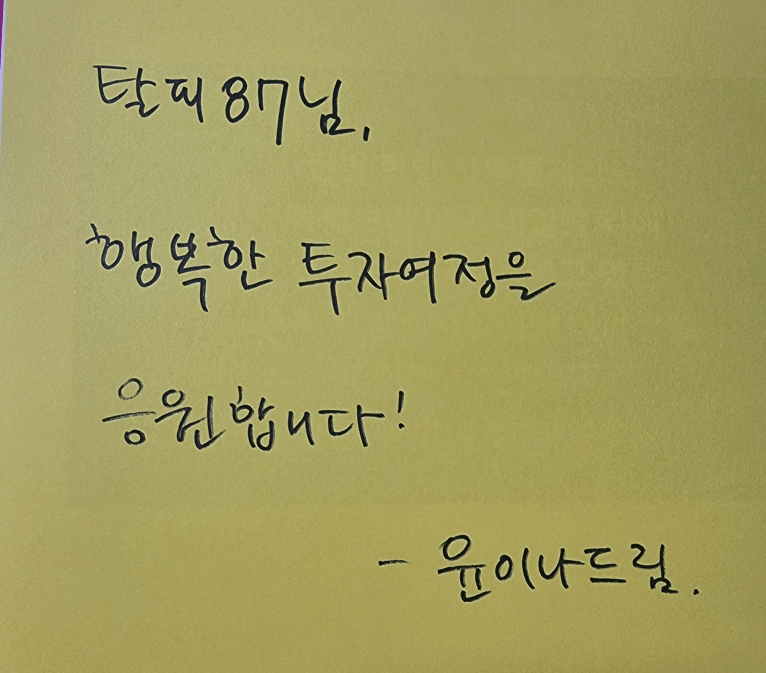 탈피87님,
행복한 투자여정을
응원합니다!
- 윤이나드림.